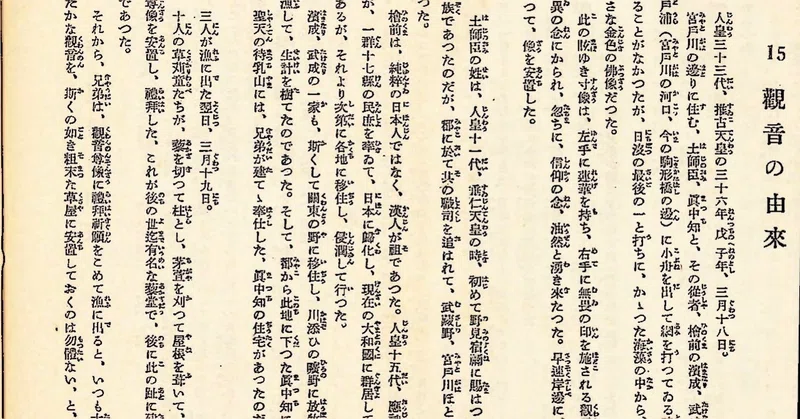 15 觀音の由來
人皇三十三代、推古天皇の三十六年、戊子年、三月十八日。
宮戸川の邊りに住む、土師臣、眞中知と、その從者、檜前の濱成、武
戸浦（宮戸川の河口、今の駒形橋の邊）に小舟を出して網を打つてゐる
ることがなかつたが、日沒の最後の一と打ちに、かゝつた海藻の中から
さな金色の佛像だつた。
此の眩ゆき寸像は、左手に蓮華を持ち、右手に無畏の印を施される觀
異の念にかられ、忽ちに、信仰の念、油然と湧き來たつた。早速岸邊に
つて、像を安置した。
土師臣の姓は、人皇十一代、垂仁天皇の時、初めて野見宿禰に賜はつ
族であつたのだが、都に於て其の職司を追はれて、武藏野、宮戸川ほと
つた。
檜前は、純粹の日本人ではなく、漢人が祖であつた。人皇十五代、應
が、一群十七縣の民庶を率ゐて、日本に歸化し、現在の大和國に群居して
あるが、それより次第に各地に移住し、侵潤して行つた。
濱成、武成の一家も、斯くして關東の野に移住し、川添ひの曠野に放
漁して、生計を樹てたのであつた。そして、都から此地に下つた眞中知に
聖天の待乳山には、兄弟が建てゝ奉仕した、眞中知の住宅があつたのだ
三人が漁に出た翌日、三月十九日。
十人の草刈童たちが、藜を切つて柱とし、茅萱を刈つて屋根を葺いて、
尊像を安置し、禮拜した、これが後の世迄有名な藜堂で、後に此の趾に
であつた。
それから、兄弟は、觀音尊像に禮拜祈願をこめて漁に出ると、いつも
たかな觀音を、斯くの如き粗末な草屋に安置しておくのは勿體ない、と、